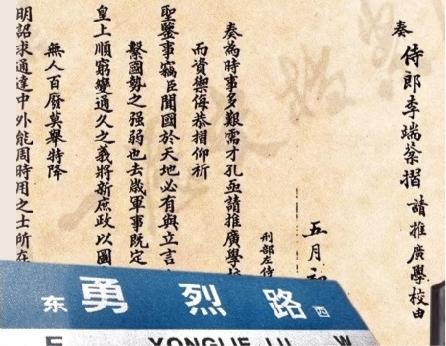 奏 侍郎李端棻摺 請推廣學校由
五月初
刑部左侍
奏為時事多艱需才孔亟請推廣學校
而資禦侮恭摺仰祈
聖鑒事竊臣聞國於天地必有與立言
繫國勢之强弱也去歲軍事既定
皇上順窮變通久之義將新庶政以圖
無人百廢莫舉特降
明詔求通達中外能周時用之士所在
东 勇烈路 西
E YONGLIE LU W